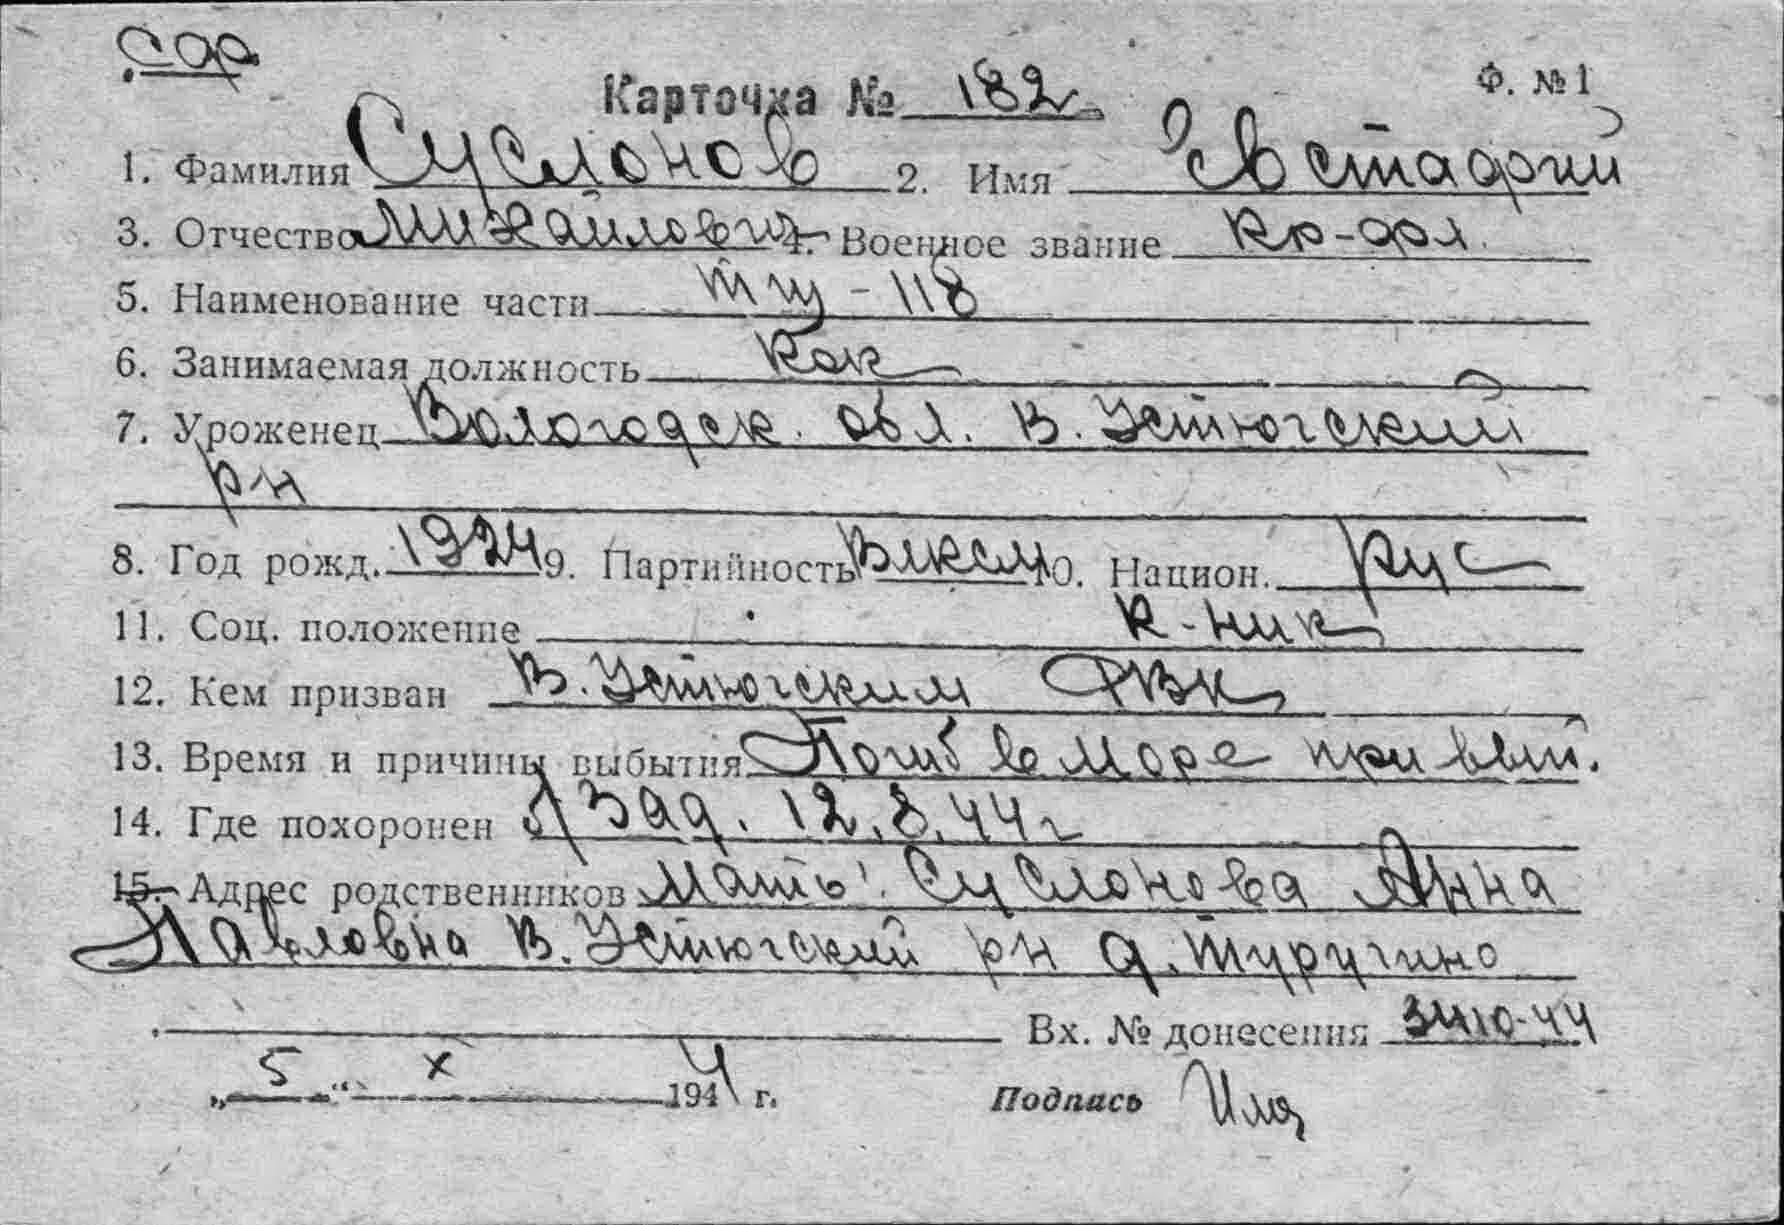 сф
Карточка № 182 Ф. №1
1. Фамилия Суслонов 2. Имя Евстафий
3. Отчество Михайлович 4. Военное звание кр-фл.
5. Наименование части тщ - 118
6. Занимаемая должность кок
7. Уроженец Вологодск. обл. В. Устюгский
рн
8. Год рожд. 1924 9. Партийность ВЛКСМ 10. Национ. рус
11. Соц. положение к-ник
12. Кем призван В. Устюгским РВК
13. Время и причины выбытия Погиб в море при вып.
14. Где похоронен б/зад. 12.8.44 г
15. Адрес родственников мать: Суслонова Анна
Павловна В. Устюгский рн д. Туругино
Вх. № донесения
„5“ X 1944 г. Подпись